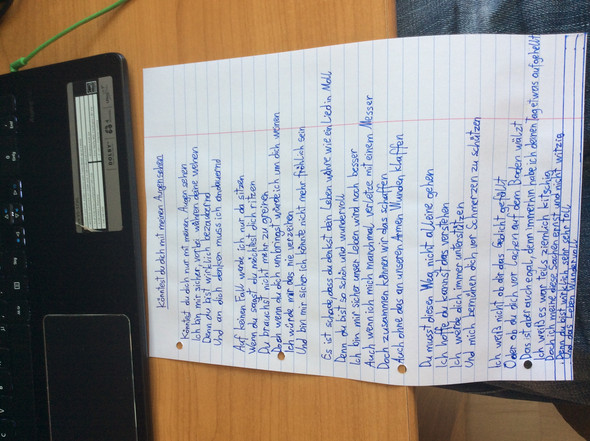 Könntest du dich mit meinen Augen sehen
Könntest du dich nur mit meinen Augen sehen
Ich bin mir sicher, vorbei wären deine wehen
Denn du bist wirklich bezaubernd
Und an dich denken muss ich andauernd
Auf keinen Fall würde ich nur da sitzen
Wenn du sagst du möchtest dich ritzen
Du brauchst nicht mehr zu greinen
Doch wenn du dich umbringst würde ich um dich weinen
Ich würde mir das nie verzeihen
Und bin mir sicher ich könnte nicht mehr fröhlich sein
Es ist schade, dass du denkst dein Leben wäre wie ein Lied in Moll
Denn du bist so schön und wundervoll
Ich bin mir sicher unser Leben wird noch besser
Auch wenn ich mich manchmal verletze mit einem Messer
Doch zusammen können wir das schaffen
Auch ohne das an unseren Armen Wunden klaffen
Du musst diesen Weg nicht alleine gehen
Ich hoffe du kannst das verstehen
Ich würde dich immer unterstützen
Und mich bemühen dich vor Schmerzen zu schützen
Ich weiß nicht ob dir das Gedicht gefällt
Oder ob du dich vor lachen auf dem Boden wälzt
Das ist aber auch egal, denn immerhin habe ich deinen Tag etwas aufgehellt
Ich weiß es war teils ziemlich kitschig
Doch ich meine diese Sachen ernst und nicht witzig
Denn du bist wirklich sehr sehr toll
Und das Leben Wundervoll